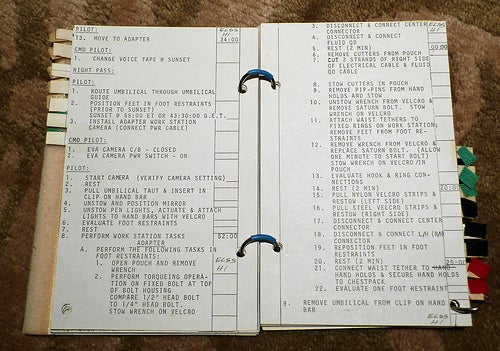 PILOT:
13. MOVE TO ADAPTER
EGSS
H1
34:00
CMD PILOT:
1. CHANGE VOICE TAPE @ SUNSET
NIGHT PASS:
PILOT:
1. ROUTE UMBILICAL THROUGH UMBILICAL
GUIDE
2. POSITION FEET IN FOOT RESTRAINTS
(PRIOR TO SUNSET)
SUNSET @ 55:00 ET OR 43:30:00 G.E.T.
3. INSTALL ADAPTER WORK STATION
CAMERA (CONNECT PWR CABLE)
CMD PILOT:
1. EVA CAMERA C/B - CLOSED
2. EVA CAMERA PWR SWITCH - ON
PILOT:
1. START CAMERA (VERIFY CAMERA SETTING)
2. REST
3. PULL UMBILICAL TAUT & INSERT IN
CLIP ON HAND BAR
4. UNSTOW AND POSITION MIRROR
5. UNSTOW PEN LIGHTS, ACTUATE & ATTACH
LIGHTS TO HAND BARS WITH VELCRO
6. EVALUATE FOOT RESTRAINTS
7. REST
8. PERFORM WORK STATION TASKS
52:00
ADAPTER
A. PERFORM THE FOLLOWING TASKS IN
FOOT RESTRAINTS:
EGSS
H1
1. OPEN POUCH AND REMOVE
WRENCH
2. PERFORM TORQUEING OPERA-
TION ON FIXED BOLT AT TOP
OF BOLT HOUSING
COMPARE 1/2" HEAD BOLT
TO 1/4" HEAD BOLT.
STOW WRENCH ON VELCRO
3. DISCONNECT & CONNECT CENTER
CONNECTOR
4. DISCONNECT & CONNECT
FLUID QD
5. REST (2 MIN)
6. REMOVE CUTTERS FROM POUCH
7. CUT 2 STRANDS OF RIGHT SIDE
OF ELECTRICAL CABLE & FLUID
QD CABLE
8. STOW CUTTERS IN POUCH
9. REMOVE PIP-PINS FROM HAND
HOLDS AND STOW
10. UNSTOW WRENCH FROM VELCRO &
REMOVE SATURN BOLT. STOW
WRENCH ON VELCRO
11. ATTACH WAIST TETHERS TO
FIXED RINGS ON WORK STATION;
REMOVE FEET FROM FOOT RE-
STRAINTS
12. REMOVE WRENCH FROM VELCRO &
REPLACE SATURN BOLT. (ALLOW
ONE MINUTE TO START BOLT)
STOW WRENCH ON VELCRO/IN
POUCH
13. EVALUATE HOOK & RING CON-
NECTIONS
14. REST (2 MIN)
20:00
15. PULL NYLON VELCRO STRIPS &
RESTOW (LEFT SIDE)
16. PULL STEEL VELCRO STRIPS &
RESTOW (RIGHT SIDE)
17. DISCONNECT & CONNECT CENTER
CONNECTOR
18. DISCONNECT & CONNECT L/H (R/H)
CONNECTOR
19. REPOSITION FEET IN FOOT
RESTRAINTS
20. REST (2 MIN)
25:00
21. CONNECT WAIST TETHER TO HAND
HOLDS & SECURE HAND HOLDS
TO CHESTPACK
22. EVALUATE ONE FOOT RESTRAINT
9. REMOVE UMBILICAL FROM CLIP ON HAND
BAR